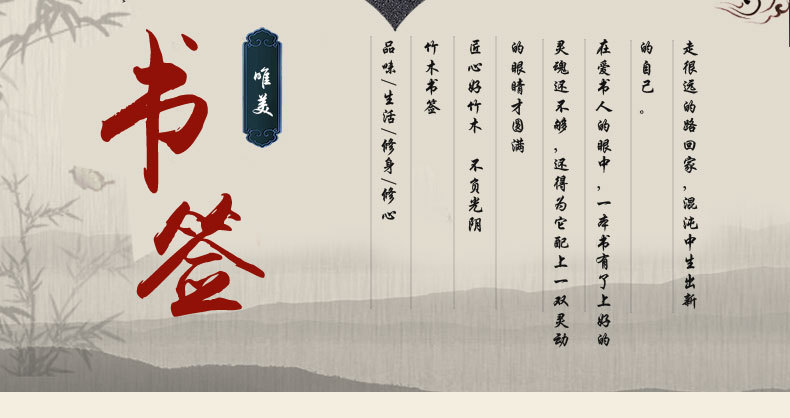 书签
唯美
走很远的路回家,混沌中生出新
的自己。
在爱书人的眼中,一本书有了上好的
灵魂还不够,还得为它配上一双灵动
的眼睛才圆满
匠心好竹木 不负光阴
竹木书签
品味/生活/修身/修心